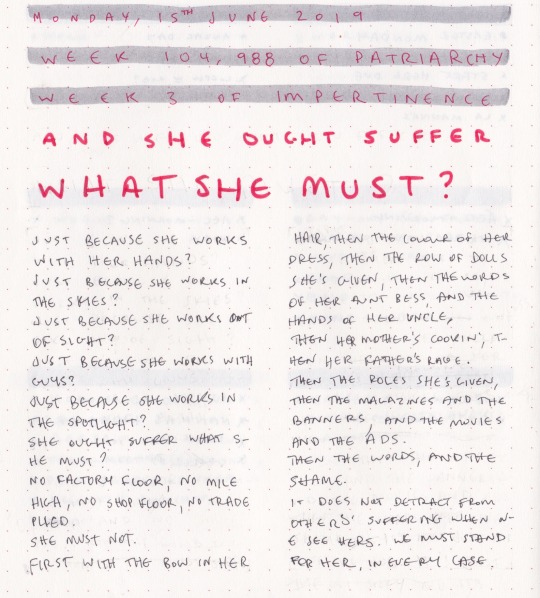 MONDAY, 15TH JUNE 2019
WEEK 104,988 OF PATRIARCHY
WEEK 3 OF IMPERTINENCE
AND SHE OUGHT SUFFER
WHAT SHE MUST?
JUST BECAUSE SHE WORKS
WITH HER HANDS?
JUST BECAUSE SHE WORKS IN
THE SKIES?
JUST BECAUSE SHE WORKS OUT
OF SIGHT?
JUST BECAUSE SHE WORKS WITH
GUYS?
JUST BECAUSE SHE WORKS IN
THE SPOTLIGHT?
SHE OUGHT SUFFER WHAT S-
HE MUST?
NO FACTORY FLOOR, NO MILE
HIGH, NO SHOP FLOOR, NO TRADE
PLIED.
SHE MUST NOT.
FIRST WITH THE BOW IN HER
HAIR, THEN THE COLOUR OF HER
DRESS, THEN THE ROW OF DOLLS
SHE'S GIVEN, THEN THE WORDS
OF HER AUNT BESS, AND THE
HANDS OF HER UNCLE,
THEN HER MOTHER'S COOKIN', T-
HEN HER FATHER'S RAGE.
THEN THE ROLES SHE'S GIVEN,
THEN THE MAGAZINES AND THE
BANNERS, AND THE MOVIES
AND THE ADS.
THEN THE WORDS, AND THE
SHAME.
IT DOES NOT DETRACT FROM
OTHERS' SUFFERING WHEN W-
E SEE HERS. WE MUST STAND
FOR HER, IN EVERY CASE.